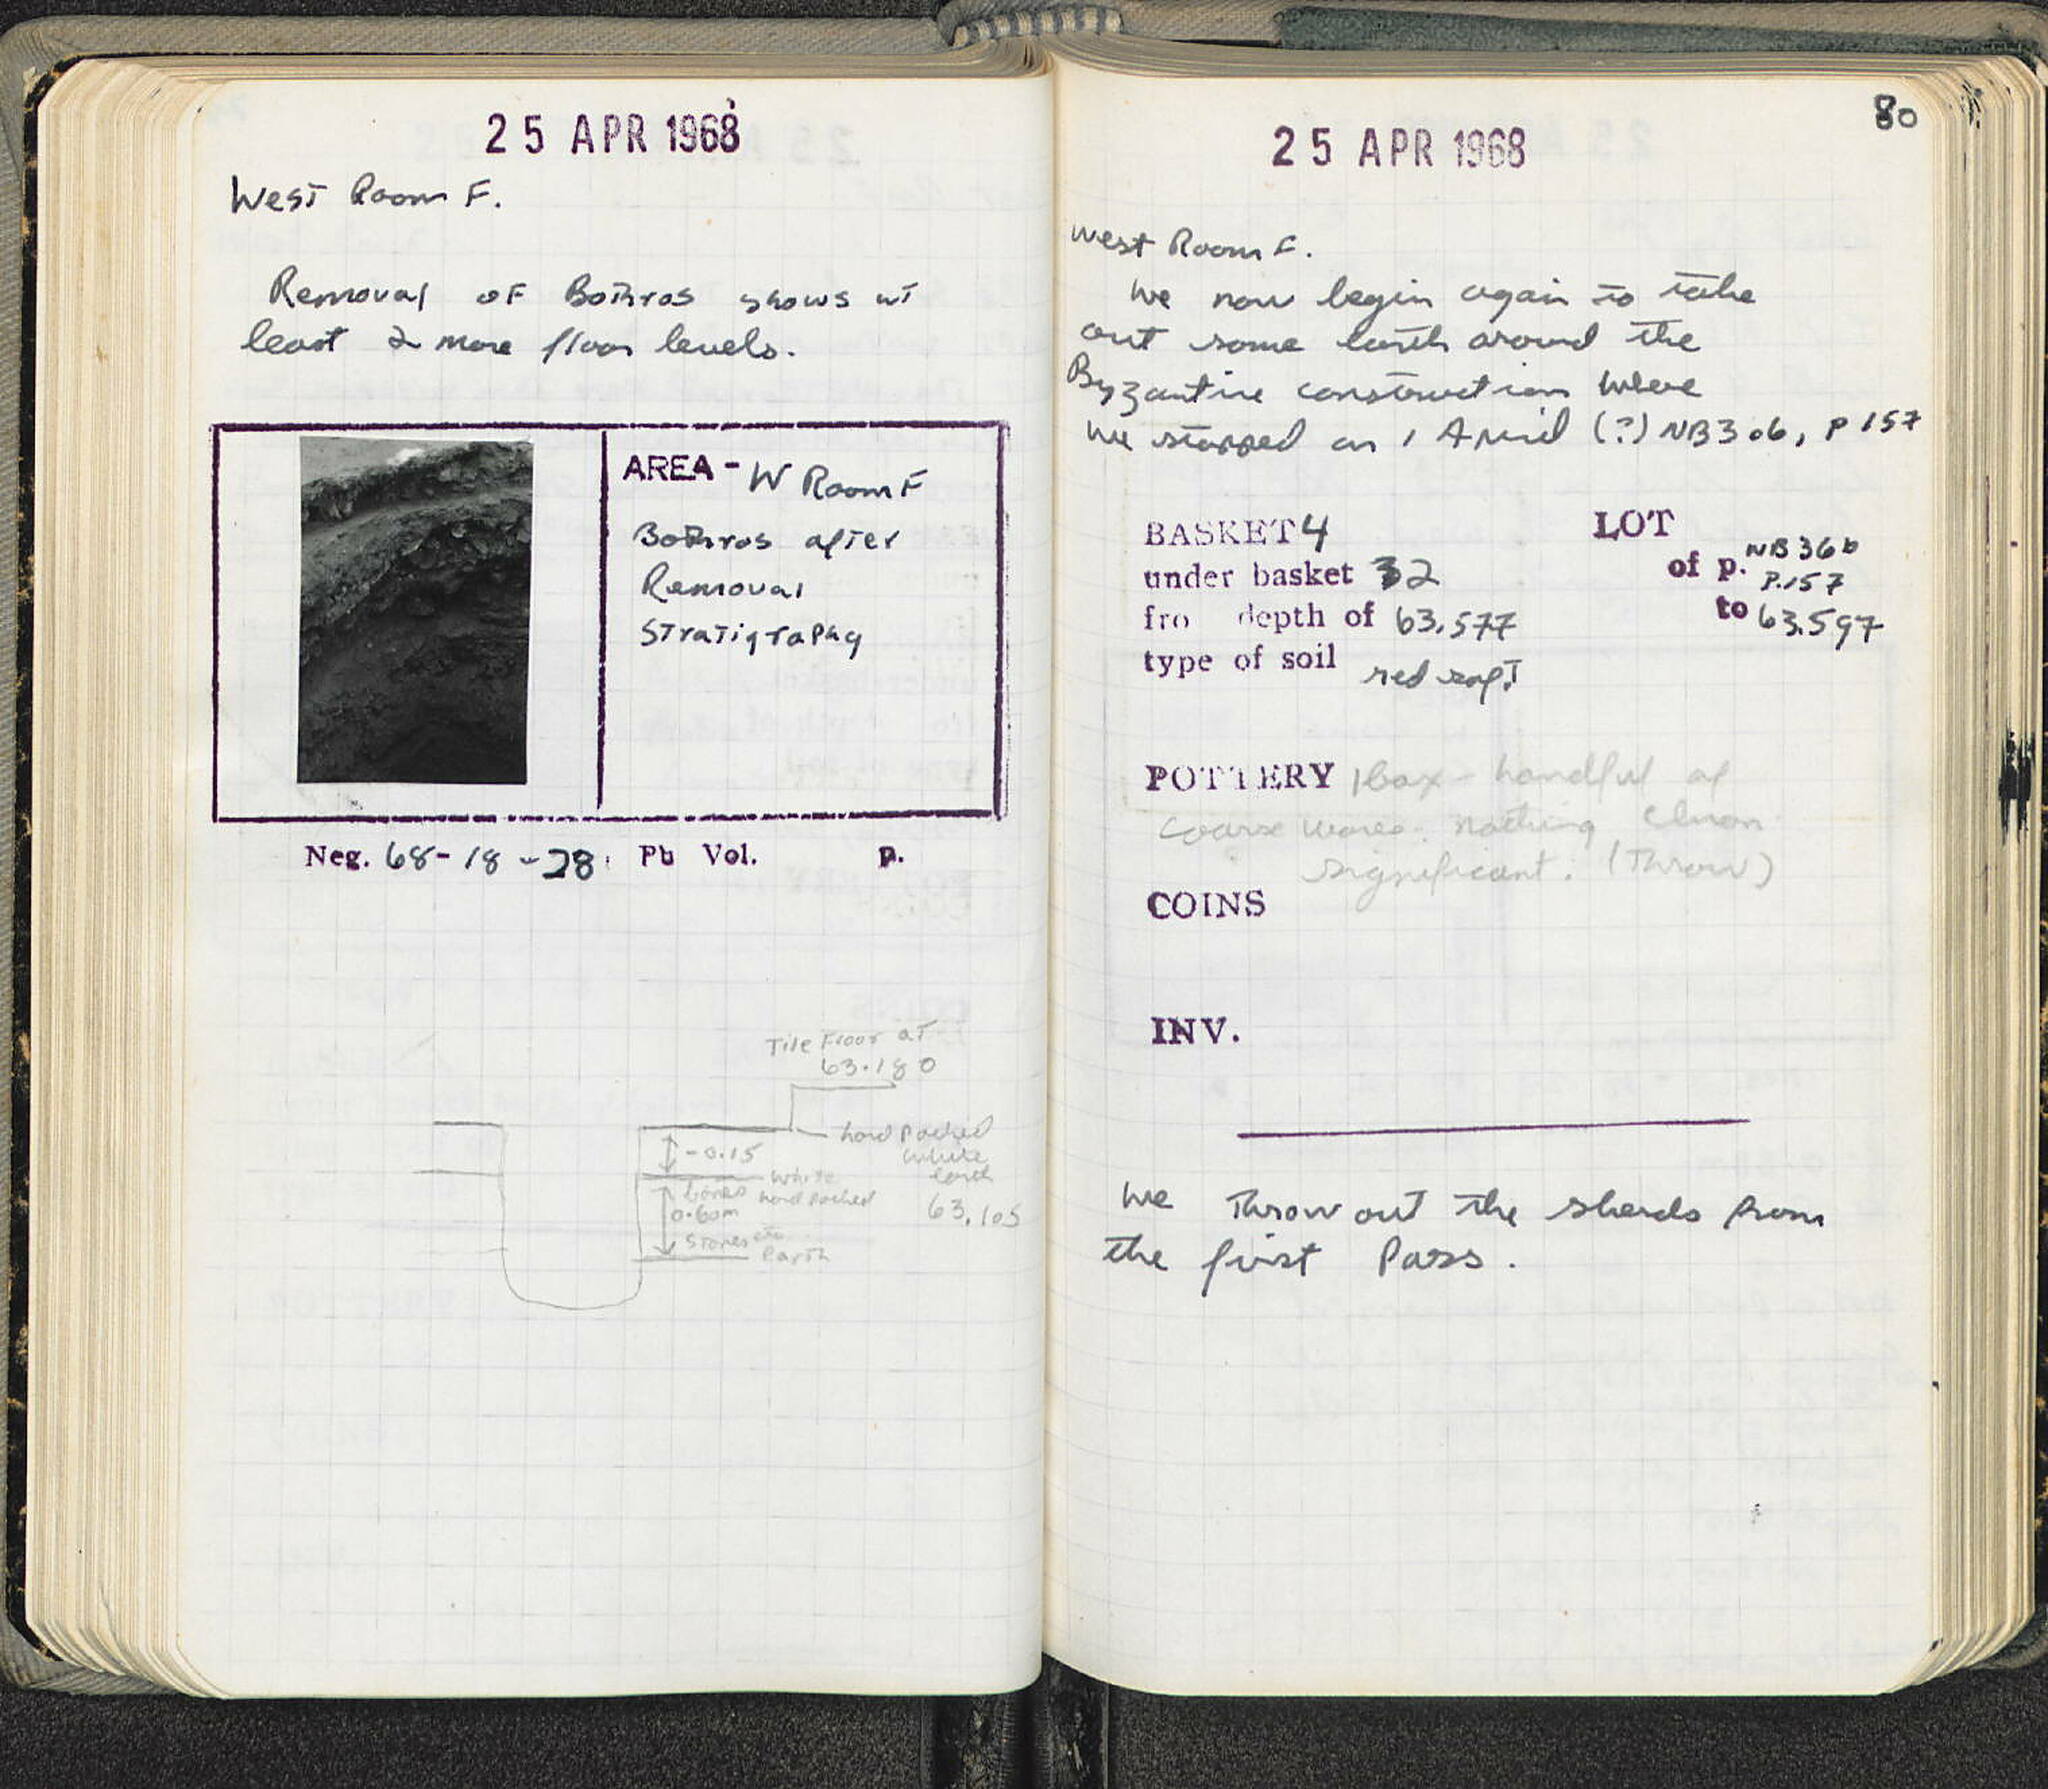 25 APR 1968
West Room F.
Removal of Bothros shows at
least 2 more floor levels.
AREA - W Room F
Bothros after
Removal
Stratigraphy
Neg. 68-18-28 Ph Vol. p.
Tile Floor at
63.180
hard Packed
white
earth
63.105
-0.15
white
hard Packed
bones
0.60m
Stones etc
Earth
25 APR 1968
80
West Room F.
We now begin again to take
out some earth around the
Byzantine construction where
we stopped on 1 April (?) NB306, P 157
BASKET 4 LOT
under basket 32 of p. NB 366
P.157
fro depth of 63.577 to 63.597
type of soil red soft
POTTERY 1 box - handful of
coarse wares. nothing chron
significant. (Throw)
COINS
INV.
We Throw out the sherds from
the first Pass.